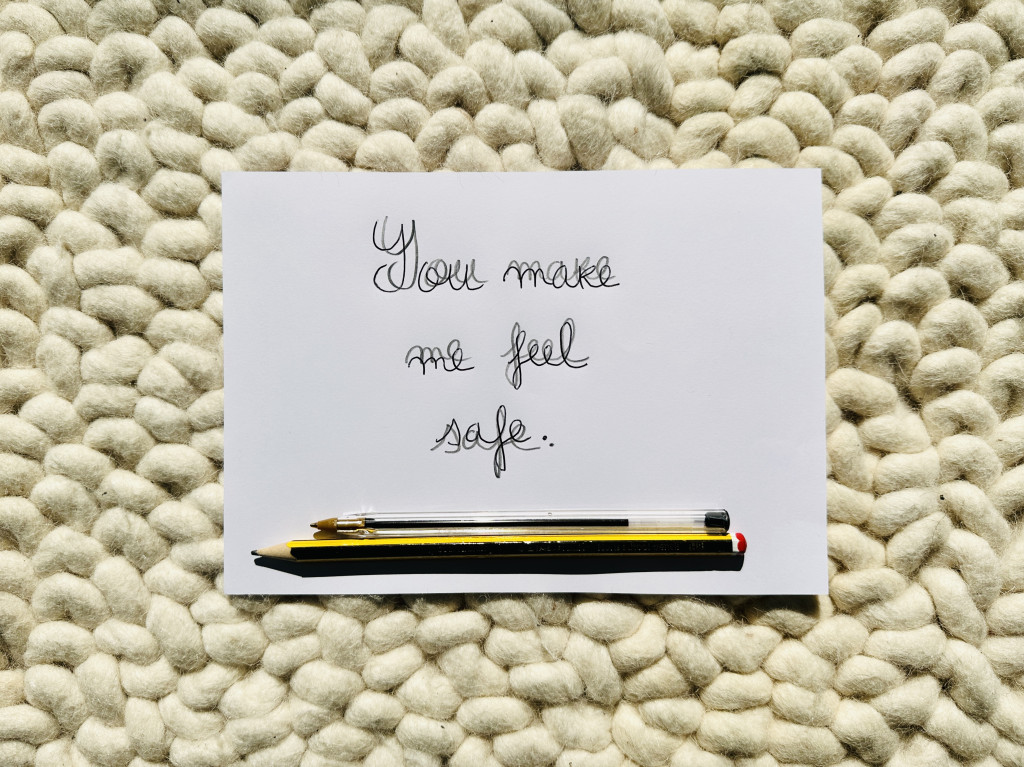 You make
me feel
safe.